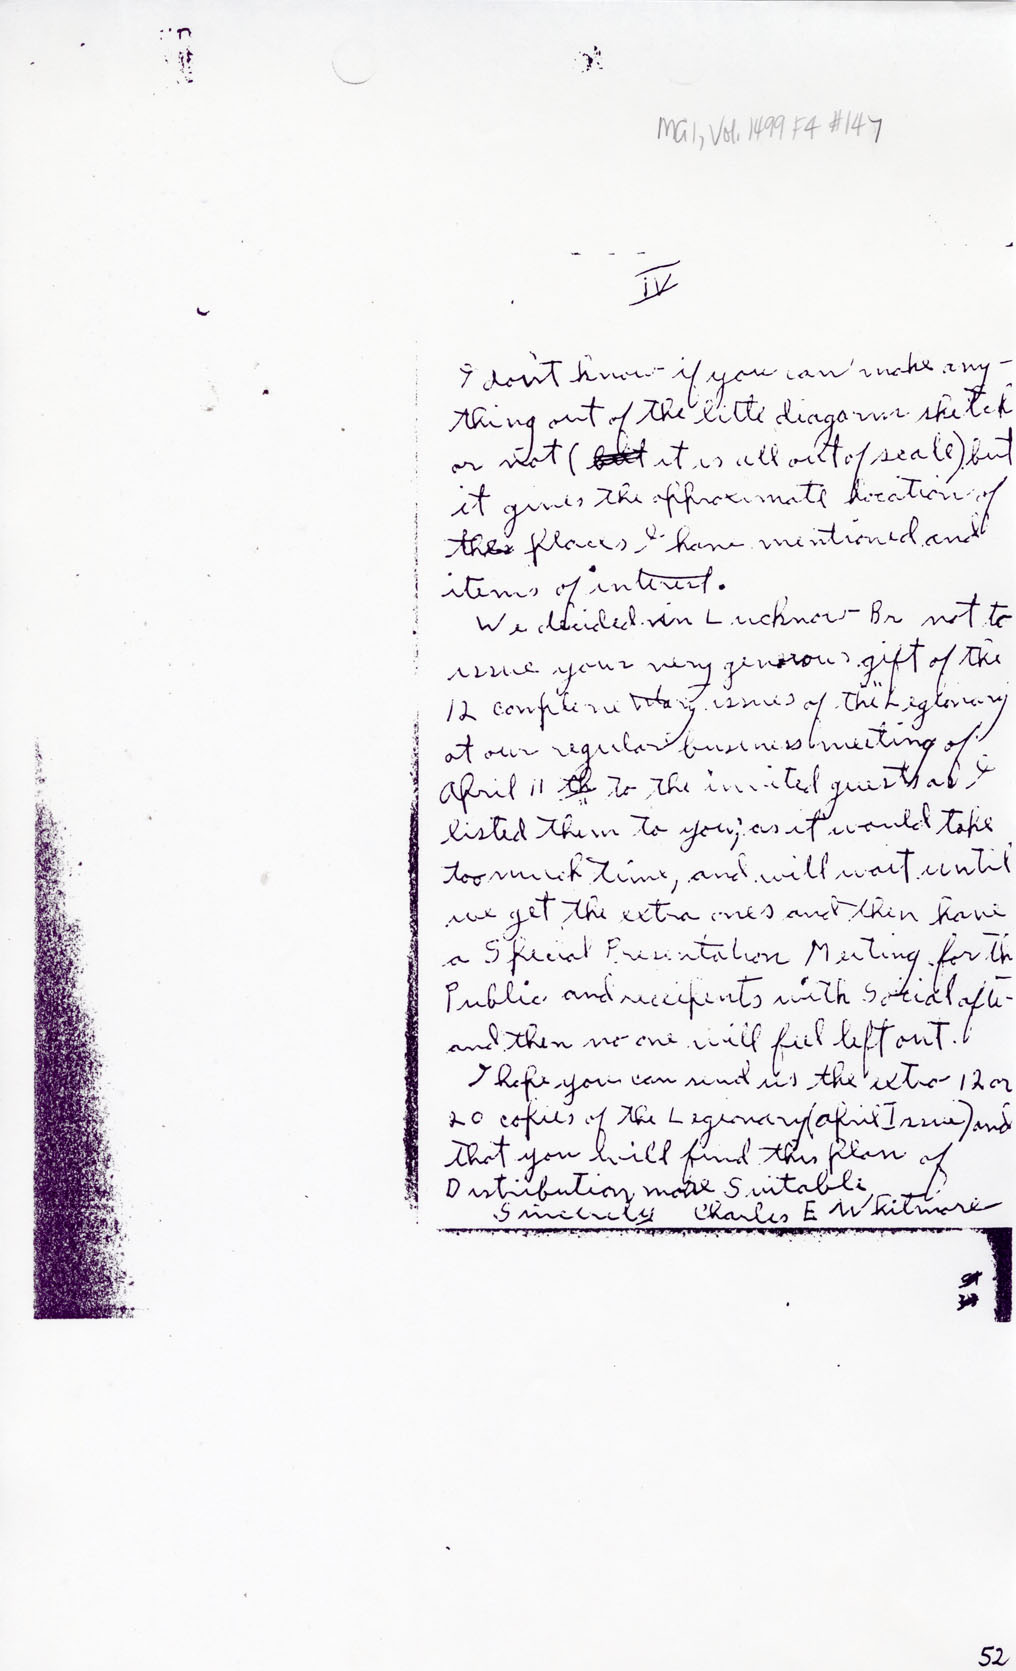 MG1, Vol. 1499 F4 #147
IV
I don't know if you can make any-
thing out of the little diagram sketch
or not (but it is all out of scale) but
it gives the approximate location of
the places I have mentioned and
items of interest.
We decided in Lucknow Br not to
issue your very generous gift of the
12 complementary issues of the "Legionary
at our regular business meeting of
April 11 th to the invited guests as I
listed them to you; as it would take
too much time, and will wait until
we get the extra ones and then have
a Special Presentation Meeting for th
Public and recipents with Social afte-
and then no one will feel left out.
I hope you can send us the extra 12 or
20 copies of the Legionary (April Issue) and
that you will find this plan of
Distribution more Suitable
Sincerely Charles E Whitmore
52